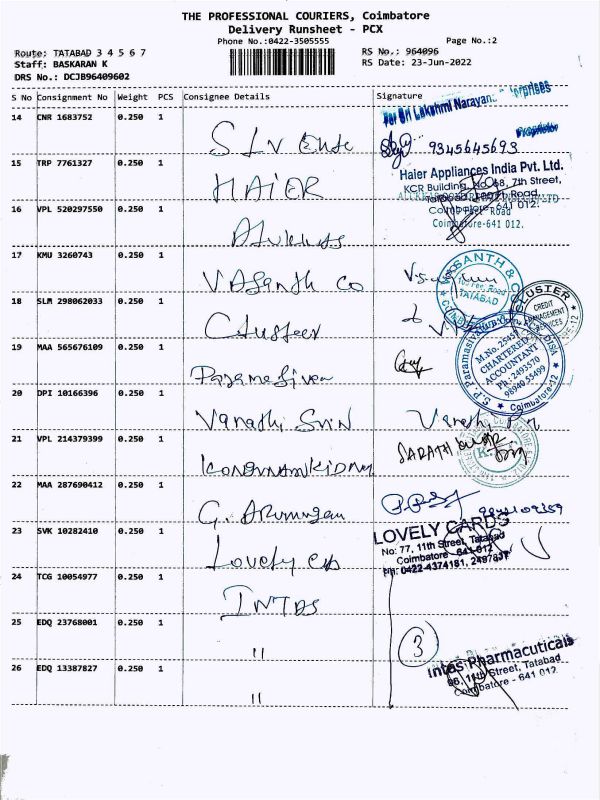 THE PROFESSIONAL COURIERS, Coimbatore
Delivery Runsheet - PCX
Phone No.:0422-3505555
Page No.:2
Route: TATABAD 3 4 5 6 7
RS No.: 964096
Staff: BASKARAN K
RS Date: 23-Jun-2022
DRS No.: DCJB96409602
S No Consignment No Weight PCS Consignee Details Signature
For Sri Lakshmi Narayana
14 CNR 1683752 0.250 1
Proprietor
SLV
9345645693
15 TRP 7761327 0.250 1
Haier Appliances India Pvt. Ltd.
KCR Building, No.68, 7th Street,
HAIER
Tatabad,
Coimbatore-641 012.
16 VPL 520297550 0.250 1
Road
Coimbatore-641 012.
17 KMU 3260743 0.250 1
VASANTH & CO
TATABAD
Vasanth Co
18 SLM 298062033 0.250 1
CLUSTER
CREDIT
MANAGEMENT
SERVICES
Cluster
19 MAA 565676109 0.250 1
S.P. Paramasivam
M.No. 25451
CHARTERED
ACCOUNTANT
Ph: 2493570
98940 55499
Coimbatore-12
Paramasivam
20 DPI 10166396 0.250 1
Vanathi
21 VPL 214379399 0.250 1
SARATH KUMAR
22 MAA 287690412 0.250 1
G. Arumugam
23 SVK 10282410 0.250 1
LOVELY CARDS
No: 77, 11th Street, Tatabad
Coimbatore - 641 012
Ph: 0422-4374181,
Lovely
24 TCG 10054977 0.250 1
INTAS
25 EDQ 23768001 0.250 1
"
3
Intas Pharmacuticals
86, 11th Street, Tatabad
Coimbatore - 641 012.
26 EDQ 13387827 0.250 1
"